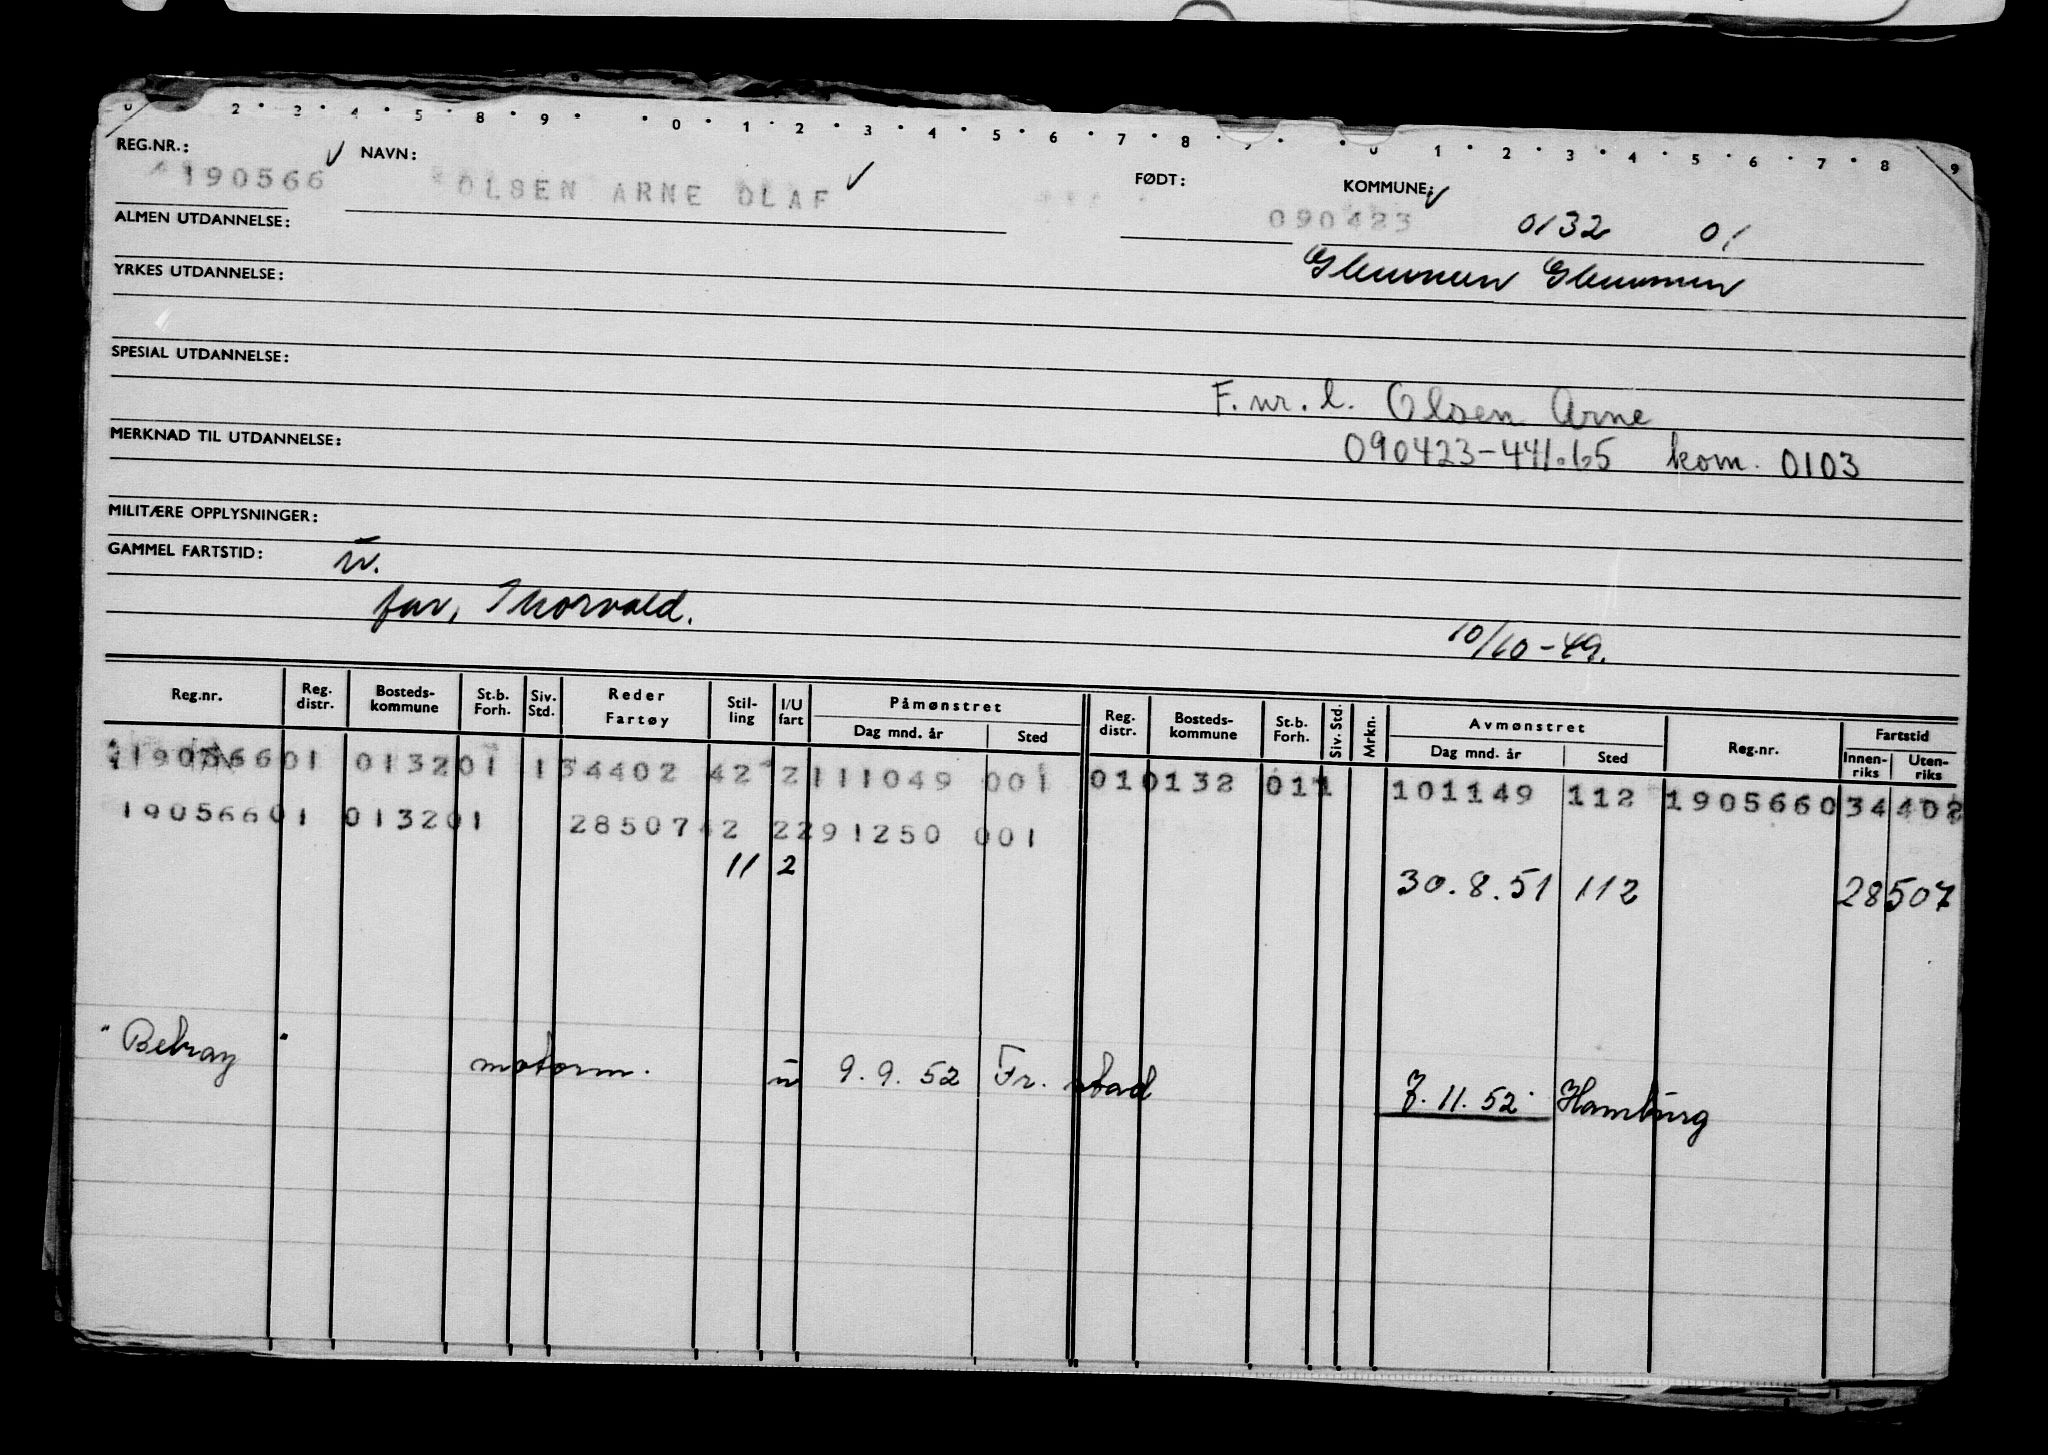 0 2 · 3 · 4 · 5 · 8 · 9 · · 0 · 1 · 2 · 3 · 4 · 5 · 6 · 7 · 8 · · · 0 · 1 · 2 · 3 · 4 · 5 · 6 · 7 · 8 · 9
REG.NR.: NAVN: FØDT: KOMMUNE:
190566 OLSEN ARNE OLAF 090423 0132 01
ALMEN UTDANNELSE:
Glemmen Glemmen
YRKES UTDANNELSE:
SPESIAL UTDANNELSE:
F.nr. l. Olsen Arne
MERKNAD TIL UTDANNELSE:
090423-441.65 kom. 0103
MILITÆRE OPPLYSNINGER:
GAMMEL FARTSTID:
far, Thorvald.
10/10-49.
Reg.nr. Reg. distr. Bosteds-kommune St.b. Forh. Siv. Std. Reder Fartøy Stil-ling I/U fart Påmønstret Dag mnd. år Sted Reg. distr. Bosteds-kommune St.b. Forh. Siv. Std. Mrkn. Avmønstret Dag mnd. år Sted Reg.nr. Fartstid Innen-riks Uten-riks
19056601 013201 134402 42 2 111049 001 010132 011 101149 112 190566034402
19056601 013201 2850742 2291250 001
11 2 30.8.51 112 28507
"Betray" motorm. u 9.9.52 Fr.stad 7.11.52 Hamburg